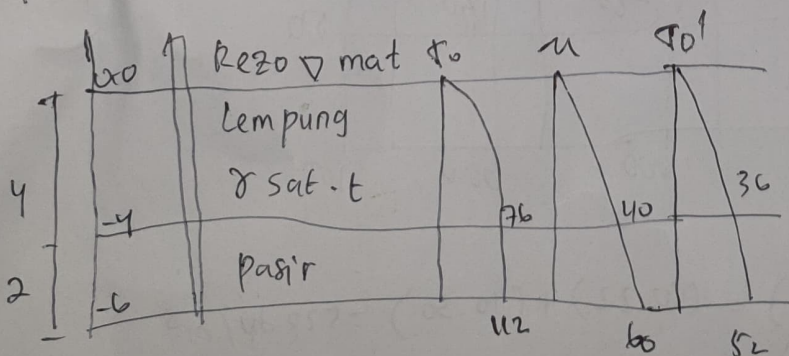 ±0 Rezo ▽ mat σo u σo'
Lempung
4 γ sat. t 36
-4 76 40
2 Pasir
-6
112 60 52